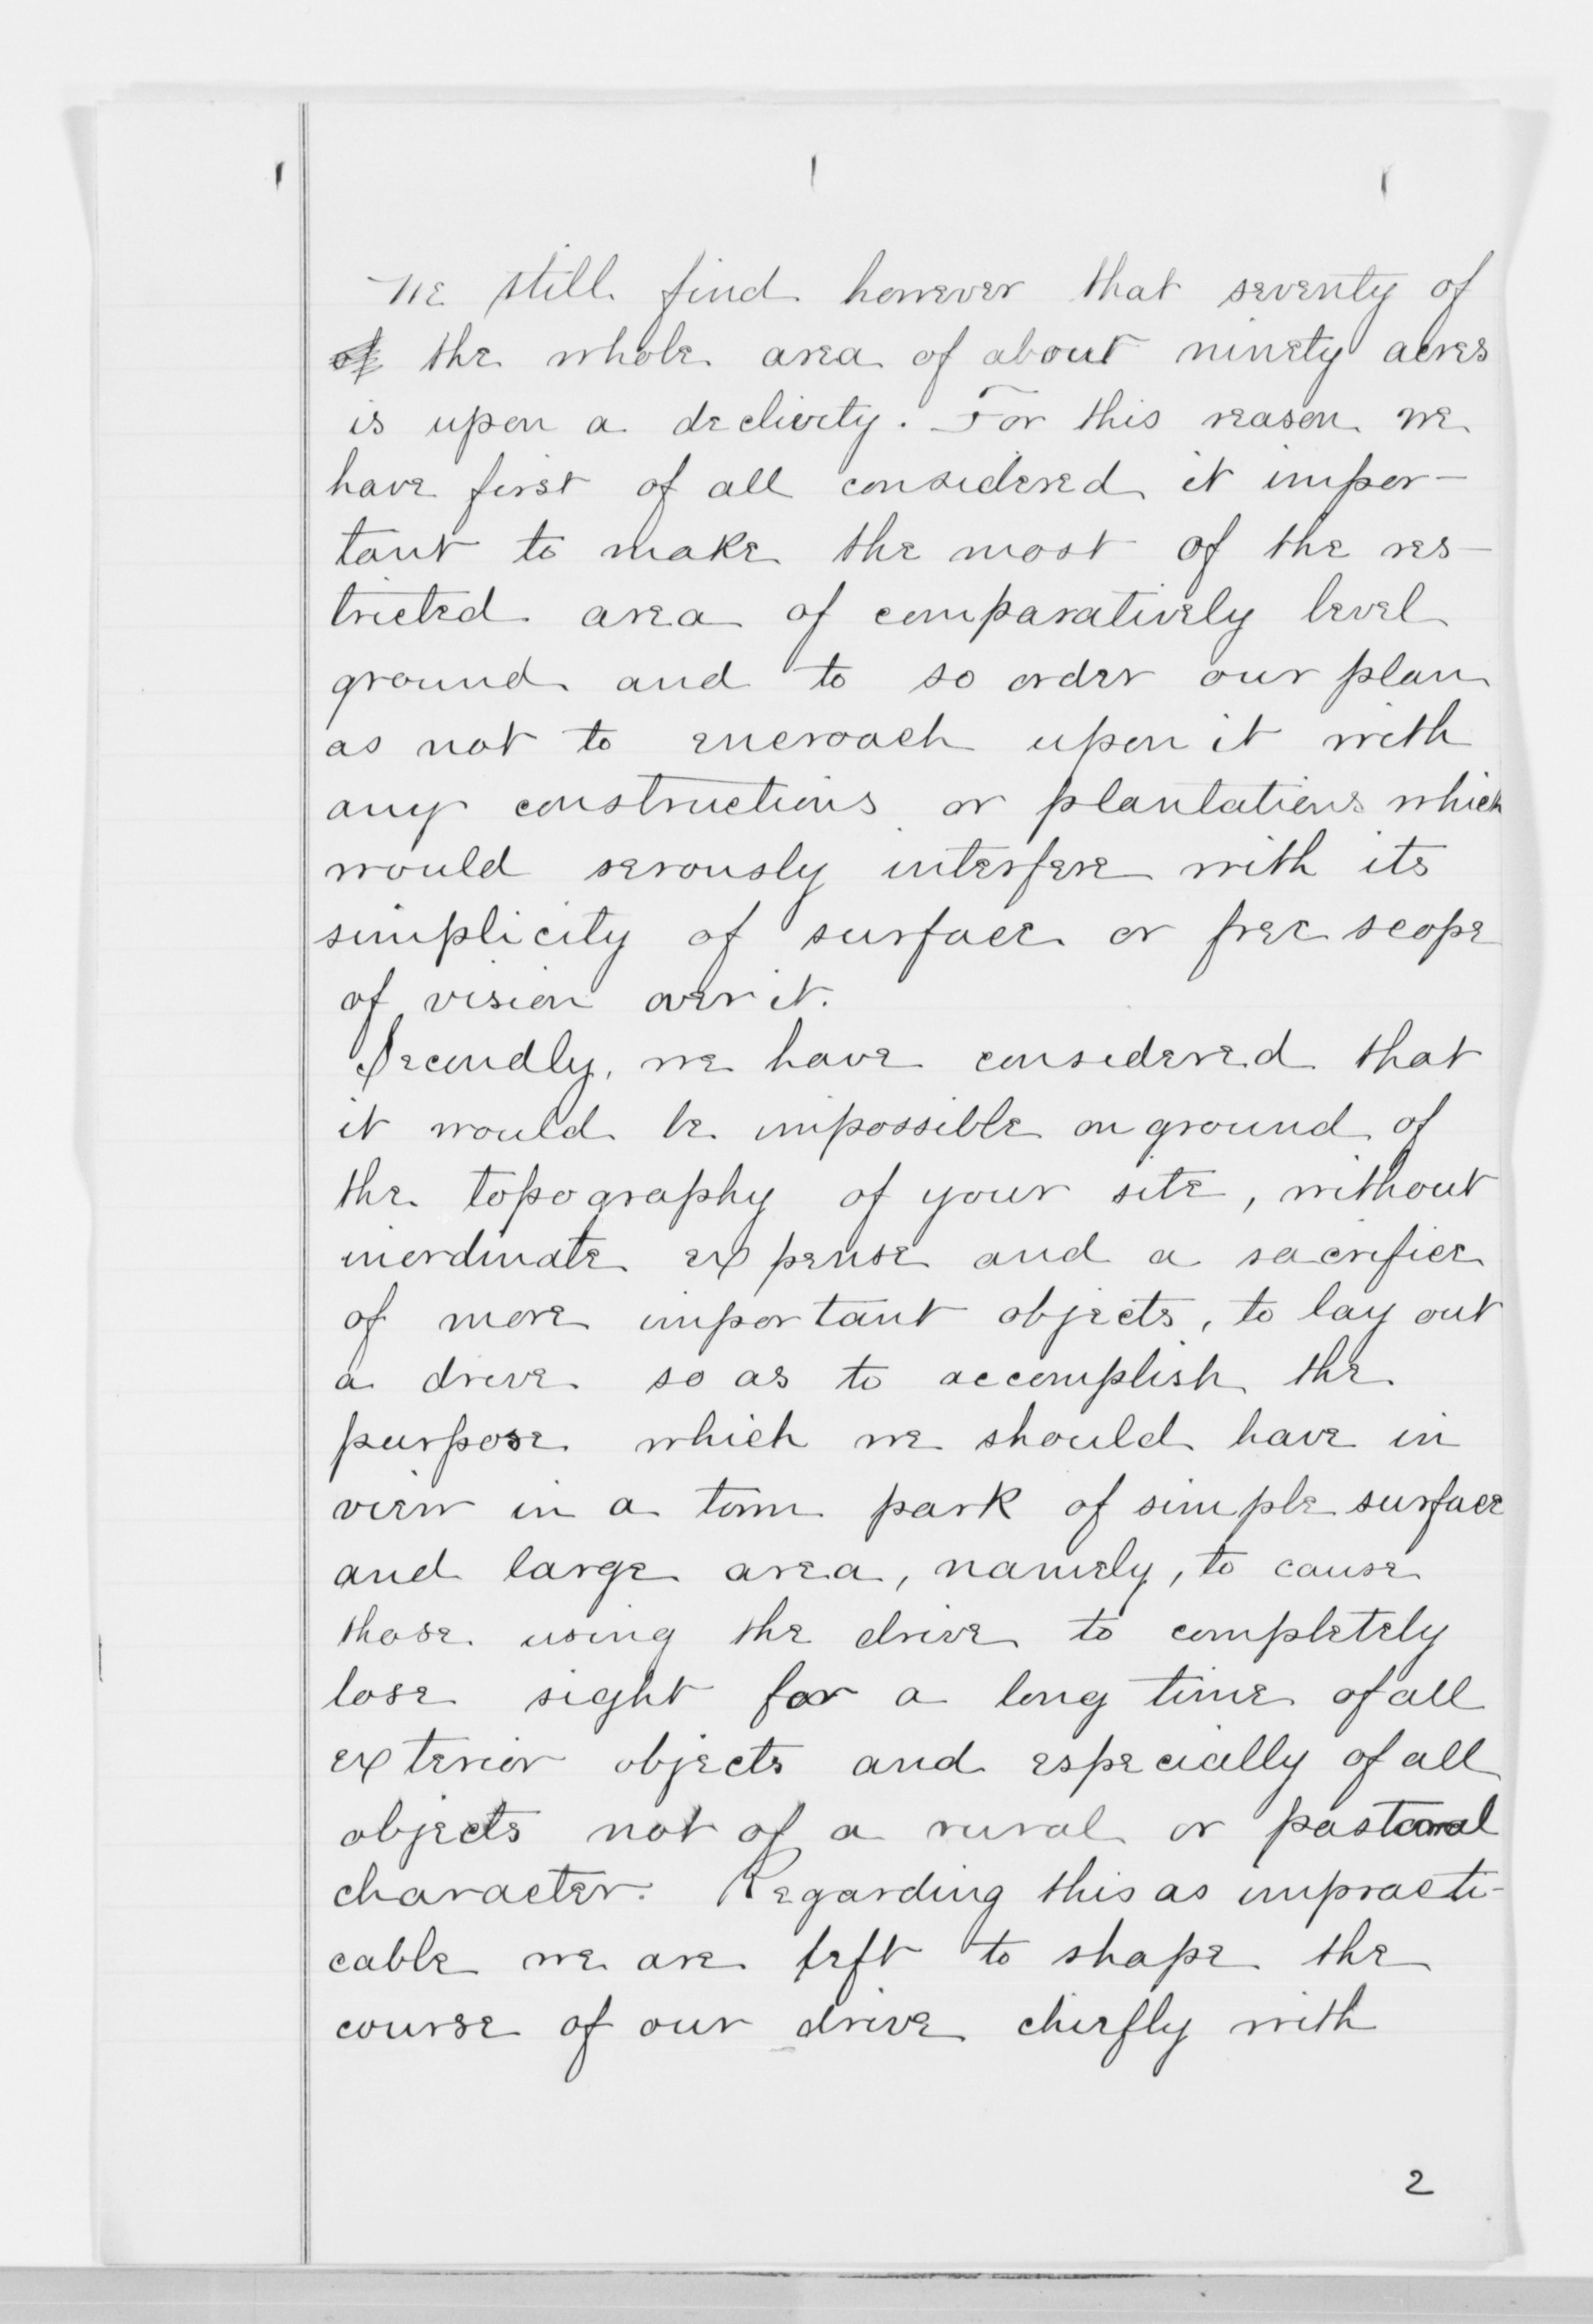 We still find however that seventy of
of the whole area of about ninety acres
is upon a declivity. For this reason we
have first of all considered it impor-
tant to make the most of the res-
tricted area of comparatively level
ground and to so order our plan
as not to encroach upon it with
any constructions or plantations which
would serously interfere with its
simplicity of surface or free scope
of vision over it.
Secondly, we have considered that
it would be impossible on ground of
the topography of your site, without
inordinate expense and a sacrifice
of more important objects, to lay out
a drive so as to accomplish the
purpose which we should have in
view in a town park of simple surface
and large area, namely, to cause
those using the drive to completely
lose sight for a long time of all
exterior objects and especially of all
objects not of a rural or pastoral
character. Regarding this as impracti-
cable we are left to shape the
course of our drive chiefly with
2